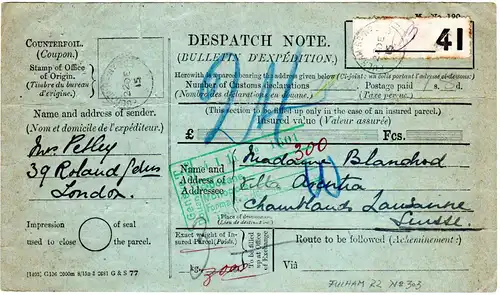 M. No. 190
COUNTERFOIL.
(Coupon.)
Stamp of Office
of Origin.
(Timbre du bureau
d'origine.)
DESPATCH NOTE.
(BULLETIN D'EXPÉDITION.)
41
Herewith a prepared bearing the address given below (Ci-joint: un colis portant l'adresse ci-dessous:)
Number of Customs declarations
(Nombre des déclarations en douane).
Postage paid s. d.
(Taxe perçue.)
24
(This section to be filled up only in the case of an insured parcel.)
Insured value (Valeur assurée)
£ Fcs.
300
Name and address of sender.
(Nom et domicile de l'expéditeur.)
Mrs Petley
39 Roland Gdns
London.
Name and
Address of
Addressee
Madame Blanchod
Villa
Chamblandes Lausanne
Suisse.
(Place of destination.)
(Lieu de destination.)
Impression of seal
used to close the parcel.
Exact weight of Insured Parcel (Poids).
kg.
To be filled up at Office of Exchange
Route to be followed (Acheminement:)
Viâ
G & S 77
FULHAM R2 No 303